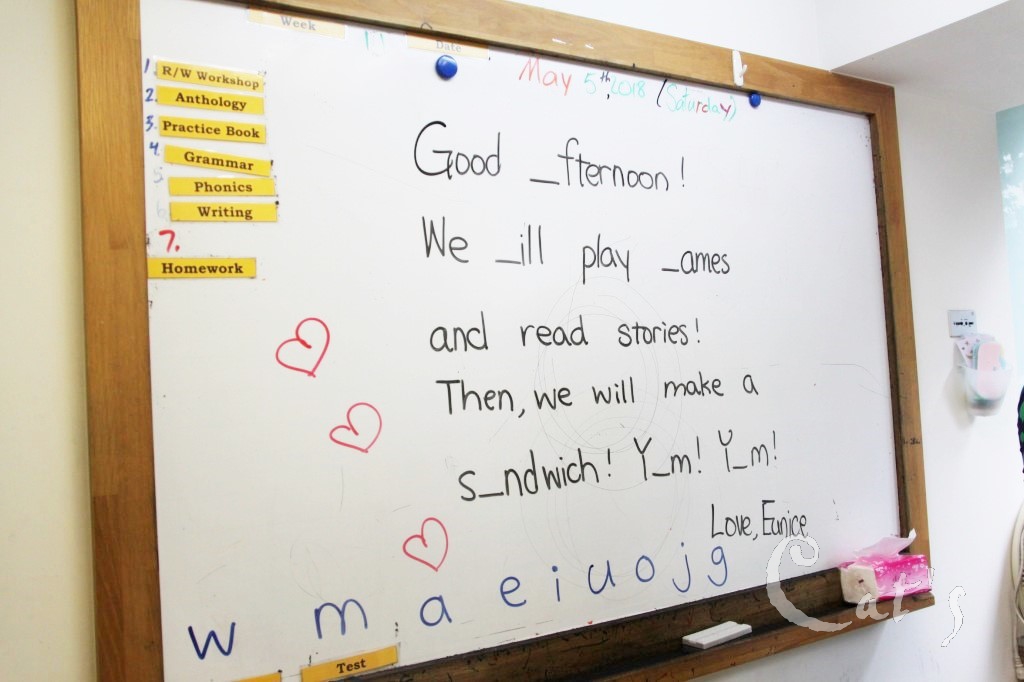 Week
Date
May 5th, 2018 (Saturday)
1. R/W Workshop
2. Anthology
3. Practice Book
4. Grammar
5. Phonics
6. Writing
7.
Homework
Good _fternoon!
We _ill play _ames
and read stories!
Then, we will make a
s_ndwich! Y_m! Y_m!
Love, Eunice
w m a e i u o j g
Test
Cat's